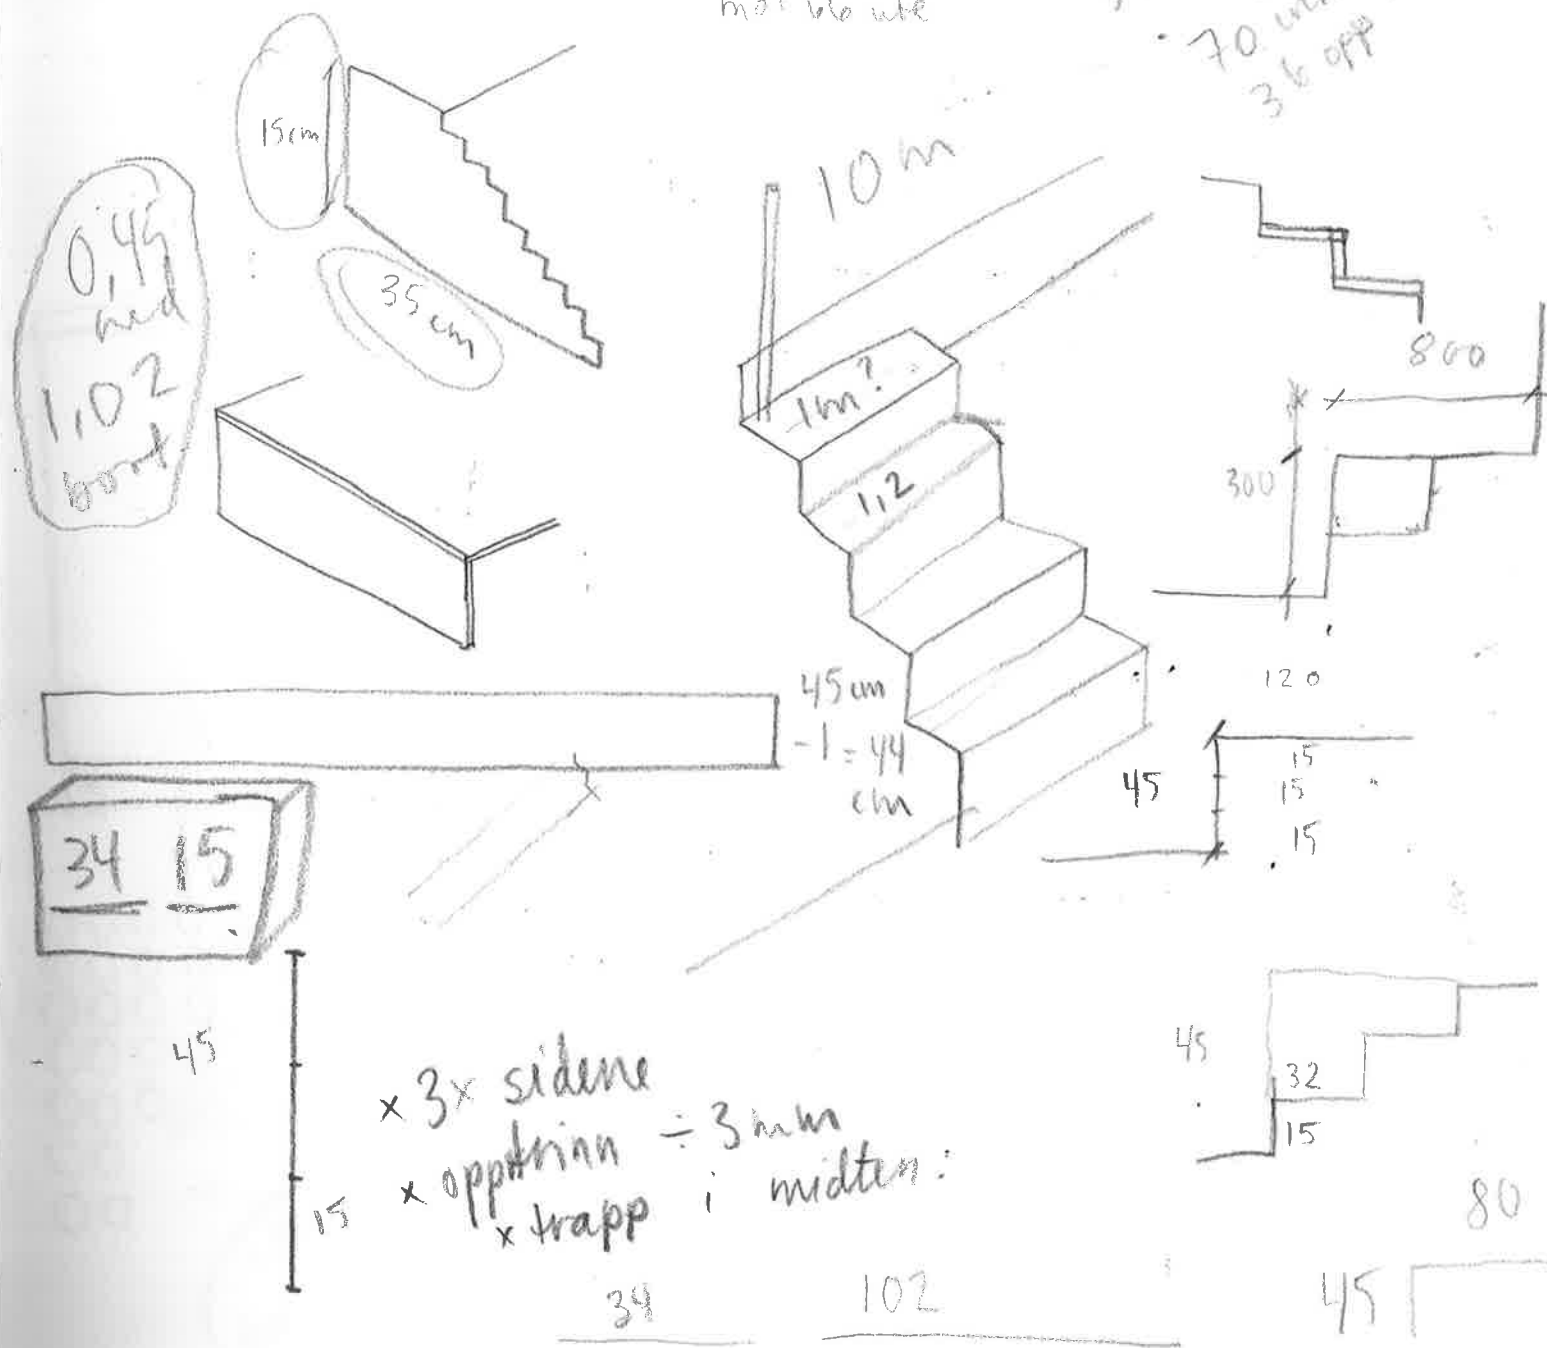 70
36 opp
15 cm
10 m
0,45
ned
1,02
bort
35 cm
1m?
1,2
800
300
120
45 cm
-1 = 44
cm
45
15
15
15
34 15
45
15
x 3x sidene
x opptrinn ÷ 3mm
x trapp i midten:
45
32
15
80
45
34
102